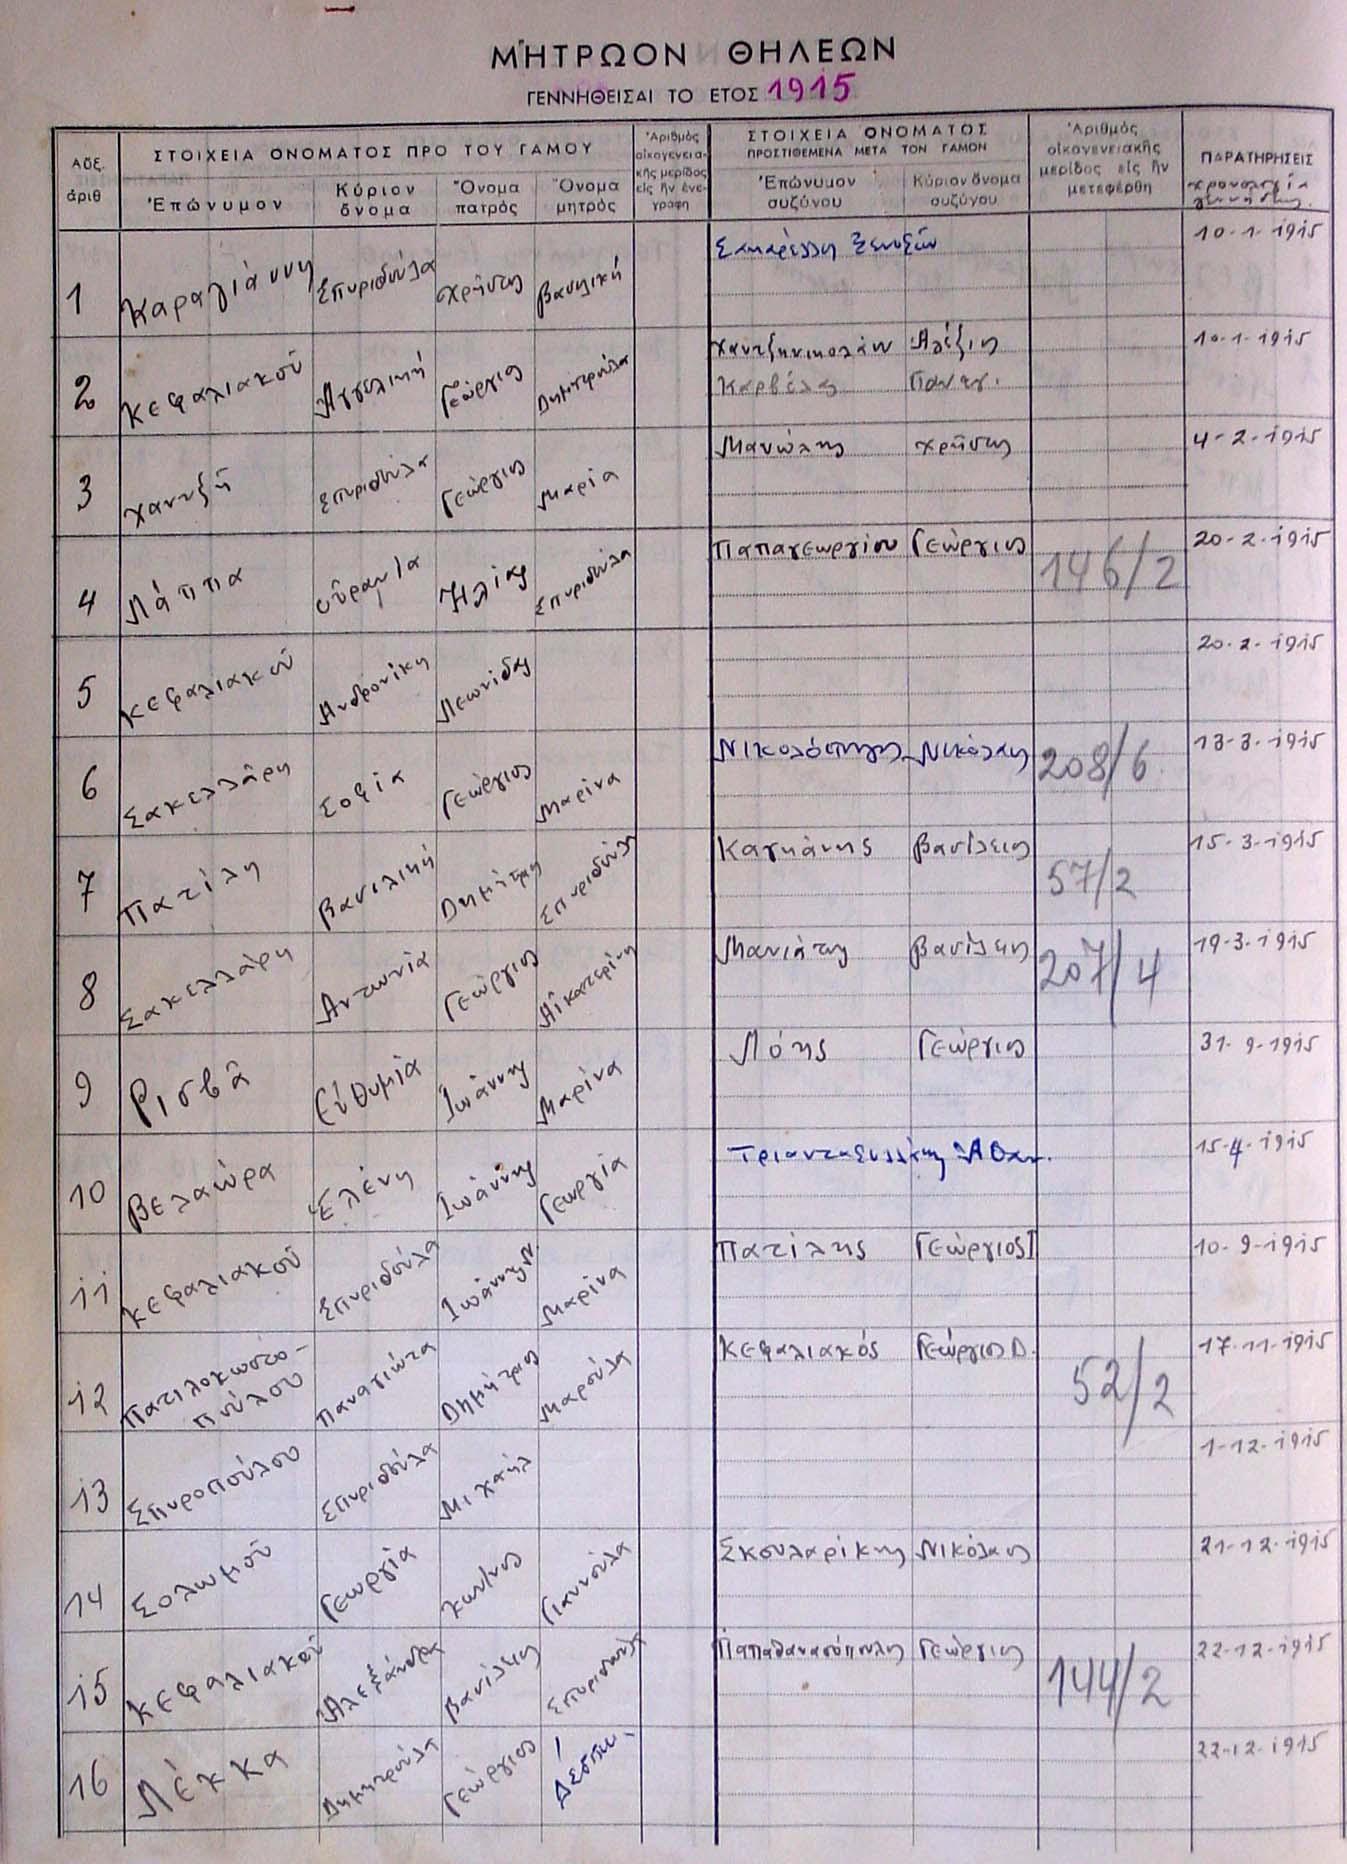 ΜΗΤΡΩΟΝ ΘΗΛΕΩΝ
ΓΕΝΝΗΘΕΙΣΑΙ ΤΟ ΕΤΟΣ 1915
Αὔξ. ἀριθ
ΣΤΟΙΧΕΙΑ ΟΝΟΜΑΤΟΣ ΠΡΟ ΤΟΥ ΓΑΜΟΥ
Ἐπώνυμον
Κύριον ὄνομα
Ὄνομα πατρός
Ὄνομα μητρός
Ἀριθμός οἰκογενειακῆς μερίδος εἰς ἥν ἐνεγράφη
ΣΤΟΙΧΕΙΑ ΟΝΟΜΑΤΟΣ ΠΡΟΣΤΙΘΕΜΕΝΑ ΜΕΤΑ ΤΟΝ ΓΑΜΟΝ
Ἐπώνυμον συζύγου
Κύριον ὄνομα συζύγου
Ἀριθμός οἰκογενειακῆς μερίδος εἰς ἥν μετεφέρθη
ΠΑΡΑΤΗΡΗΣΕΙΣ
χρονολογία γεννήσεως.
1 Καραγιάννη Σπυριδούλα Χρῆστος Βασιλική 10-1-1915
2 Κεφαλιακοῦ Ἀγγελική Γεώργιος Δημητρούλα Χαντζηνικολάου Ἀλέξιος 10-1-1915
Καρβέλας Παναγ.
3 Χαντζῆ Σπυριδούλα Γεώργιος Μαρία Μανώλης Χρῆστος 4-2-1915
4 Λάππα Οὐρανία Ἠλίας Σπυριδούλα Παπαγεωργίου Γεώργιος 146/2 20-2-1915
5 Κεφαλιακοῦ Ἀνδρονίκη Λεωνίδας 20-2-1915
6 Σακελλάρη Σοφία Γεώργιος Μαρίνα Νικολόπουλος Νικόλαος 208/6 13-3-1915
7 Πατίλη Βασιλική Δημήτριος Σπυριδούλα Καγκάνης Βασίλειος 57/2 15-3-1915
8 Σακελλάρη Ἀντωνία Γεώργιος Αἰκατερίνη Μανιάτης Βασίλειος 207/4 19-3-1915
9 Ρισβᾶ Εὐθυμία Ἰωάννης Μαρίνα Λόης Γεώργιος 31-9-1915
10 Βελαώρα Ἑλένη Ἰωάννης Γεωργία Τριανταφυλλης Ἀθαν. 15-4-1915
11 Κεφαλιακοῦ Σπυριδούλα Ἰωάννης Μαρίνα Πατίλης Γεώργιος Ι 10-9-1915
12 Πατιλοκωστο-
πούλου Παναγιώτα Δημήτριος Μαρούλα Κεφαλιακός Γεώργιος Δ. 52/2 17-11-1915
13 Σπυροπούλου Σπυριδούλα Μιχαήλ 1-12-1915
14 Σολωμοῦ Γεωργία Κων/νος Γιαννούλα Σκουλαρίκης Νικόλαος 21-12-1915
15 Κεφαλιακοῦ Ἀλεξάνδρα Βασίλειος Σπυριδούλα Παπαθανασόπουλος Γεώργιος 144/2 22-12-1915
16 Λέκκα Δημητρούλα Γεώργιος Δέσποι. 22-12-1915